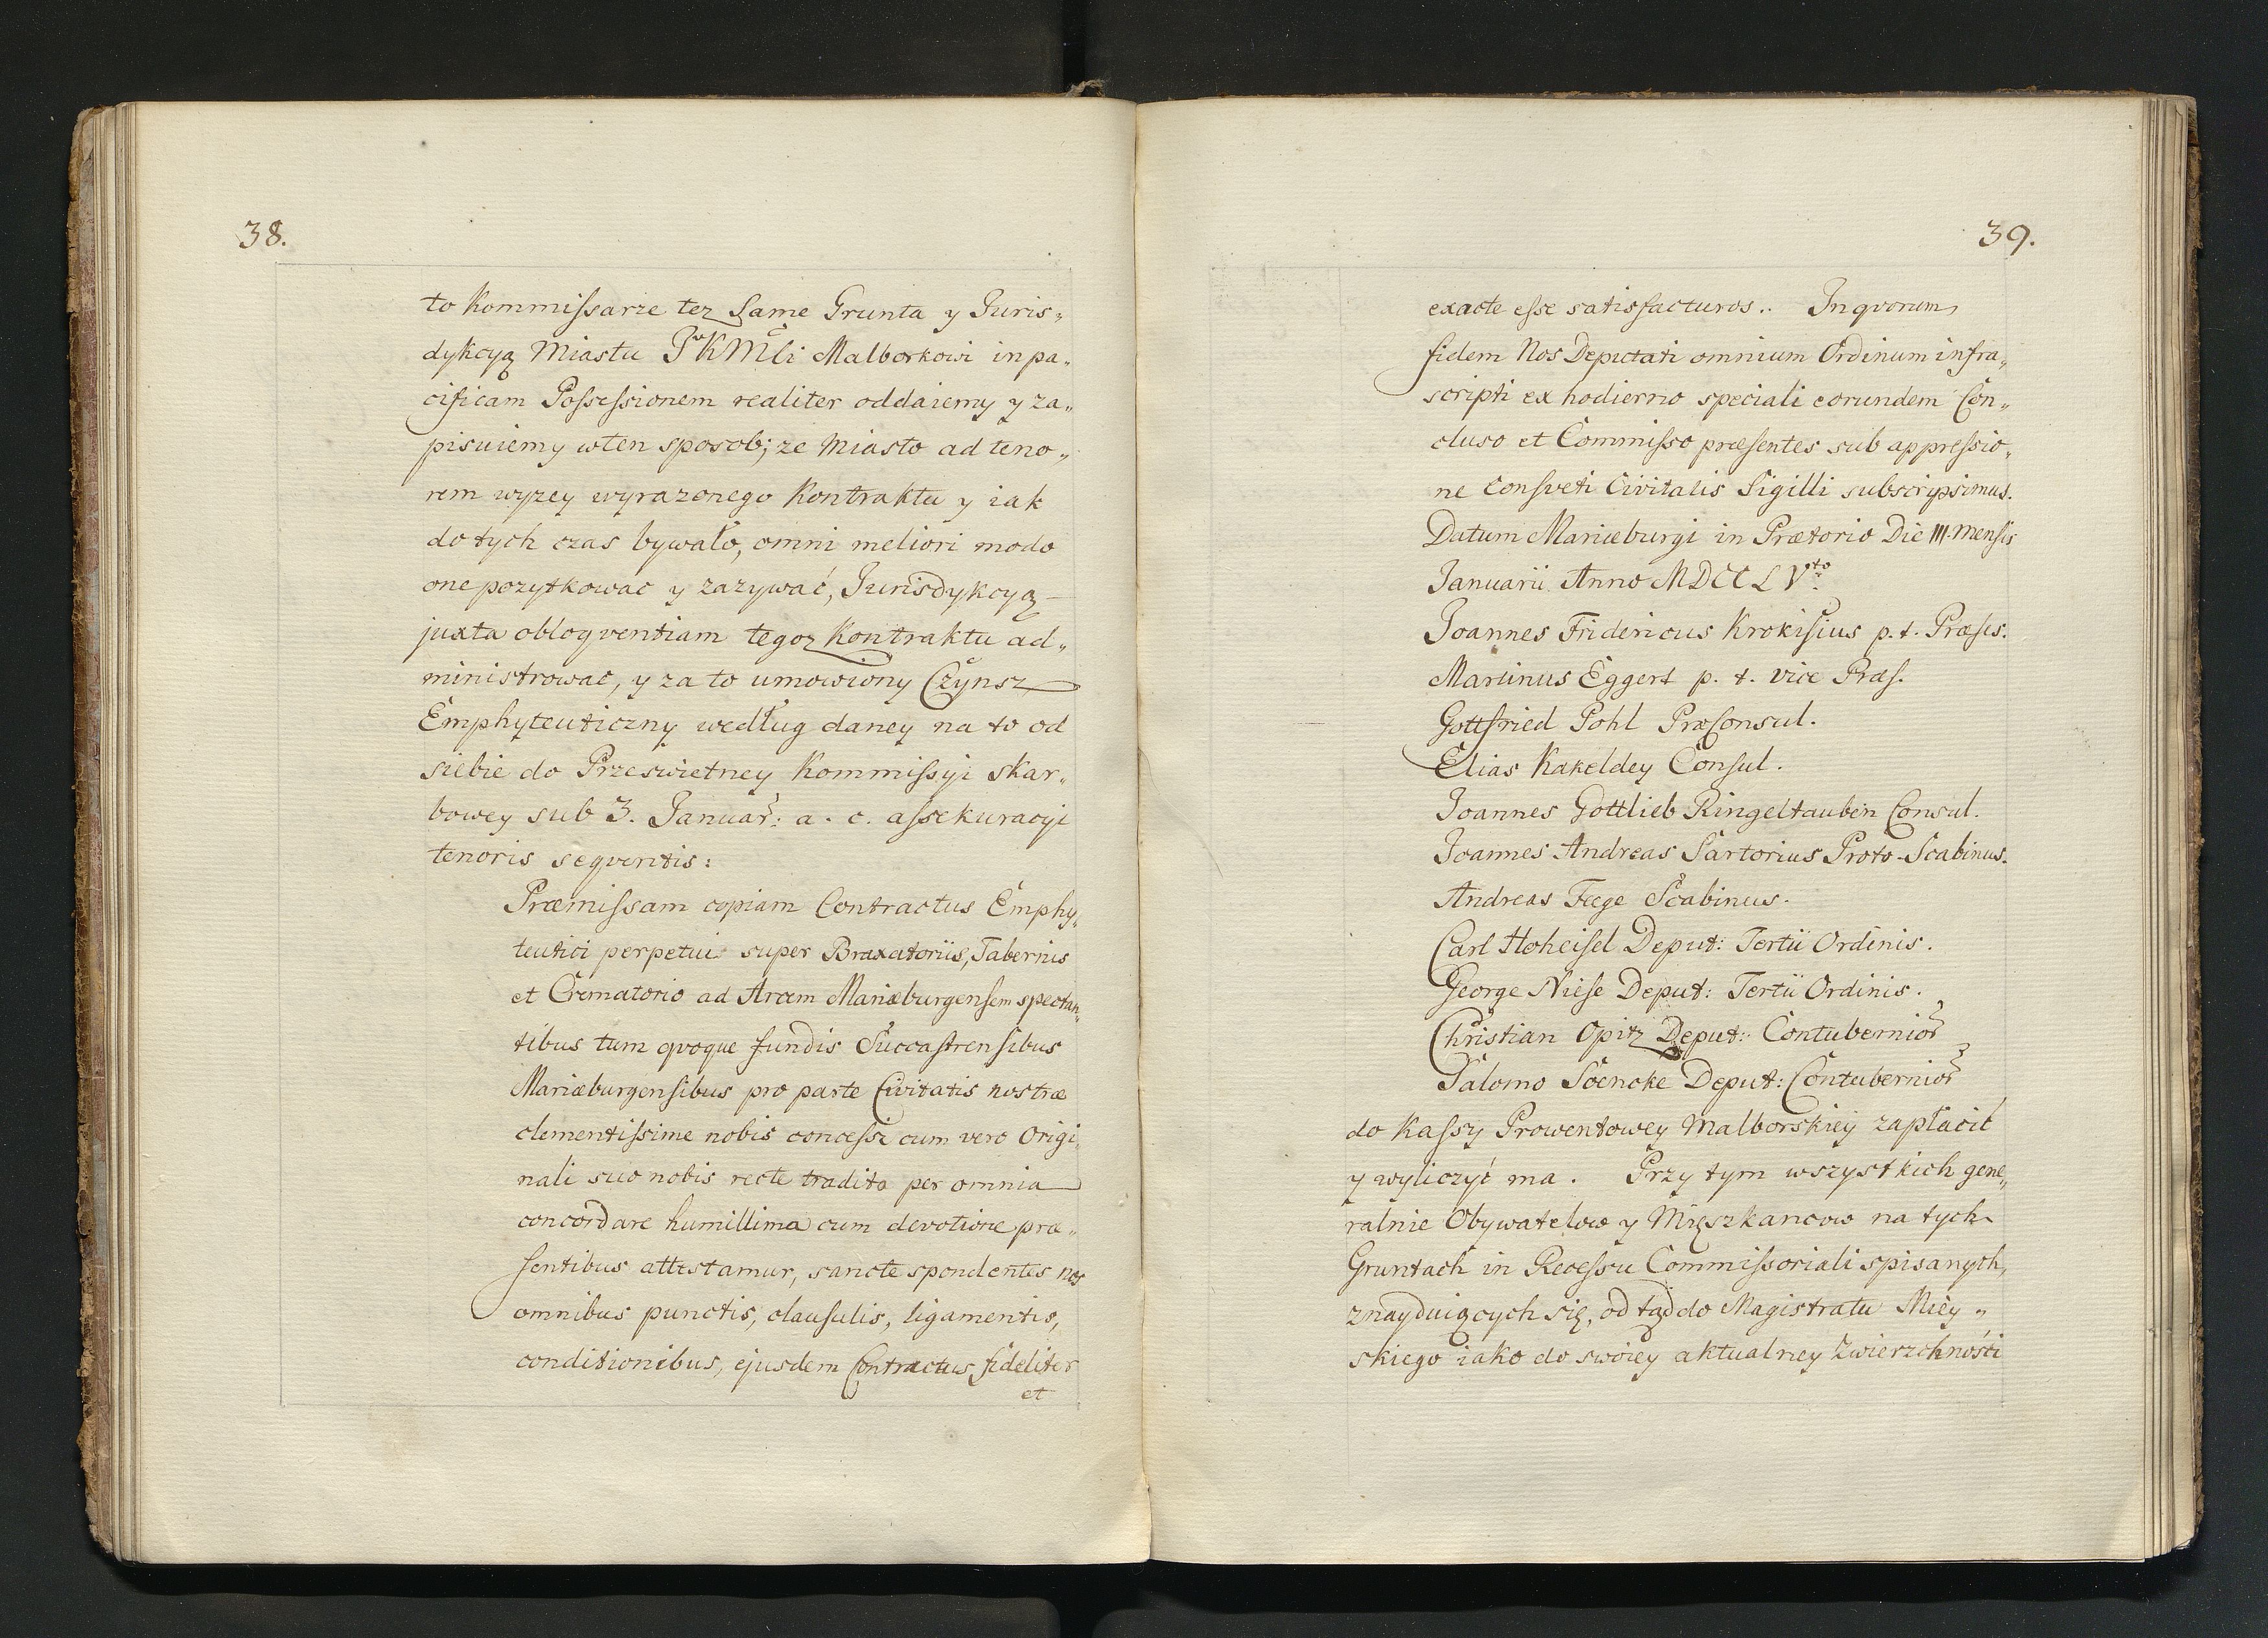 38.
to Kommissarze tez Same Grunta y Juris„
dykcyą Miastu JKMCi Malborkowi in pa„
cificam Possessionem realiter oddaiemy y za„
pisuiemy wten sposob; ze Miasto ad teno„
rem wyzey wyrazonego Kontraktu y iak
do tych czas bywało, omni meliori modo
one pozytkowac y zazywać, Jurisdykcyą
juxta obloqventiam tegoz Kontraktu ad„
ministrowac, y za to umowiony Czynsz
Emphyteuticzny według daney na to od
siebie do Przeswietney Kommissyi Skar„
bowey sub 3. Januar: a. c. assekuracyi
tenoris seqventis:
Præmissam copiam Contractus Emphy„
teutici perpetui super Braxatoriis, Tabernis
et Crematorio ad Arcem Mariæburgensem spectan„
tibus tum qvoque fundis Succastrensibus
Mariæburgensibus pro parte Civitatis nostræ
clementissime nobis concessi cum vero Origi„
nali suo nobis recte tradito per omnia
concordare humillima cum devotione præ„
sentibus attestamur, sancte spondentes nos
omnibus punctis, clausulis, ligamentis,
conditionibus, ejusdem Contractus fideliter
et
39.
exacte esse satisfacturos.. In qvorum
fidem Nos Deputati omnium Ordinum infra„
scripti ex hodierno speciali eorundem Con„
cluso et Commisso præsentes sub appressio„
ne Consveti Civitatis Sigilli subscripsimus.
Datum Mariæburgi in Prætorio Die III. Mensis
Januarii Anno MDCCLVto.
Joannes Fridericus Krokisius p. t. Præses.
Martinus Eggert p. t. vice Præs.
Gottfried Pohl PræConsul.
Elias Kakeldey Consul.
Joannes Gottlieb Ringeltauben Consul.
Joannes Andreas Sartorius Proto-Scabinus.
Andreas Feege Scabinus.
Carl Hoheisel Deput: Tertii Ordinis.
George Niese Deput: Tertii Ordinis.
Christian Opitz Deput: Contubernior
Salomo Soencke Deput: Contubernior
do Kassy Prowentowey Malborskiey zapłacić
y wyliczyć ma. Przy tym wszystkich gene„
ralnie Obywatelow y Mięszkancow na tych
Gruntach in Recessu Commissoriali spisanych,
znayduiących się, od tąd do Magistratu Miey„
skiego iako do swoiey aktualney Zwierzchności